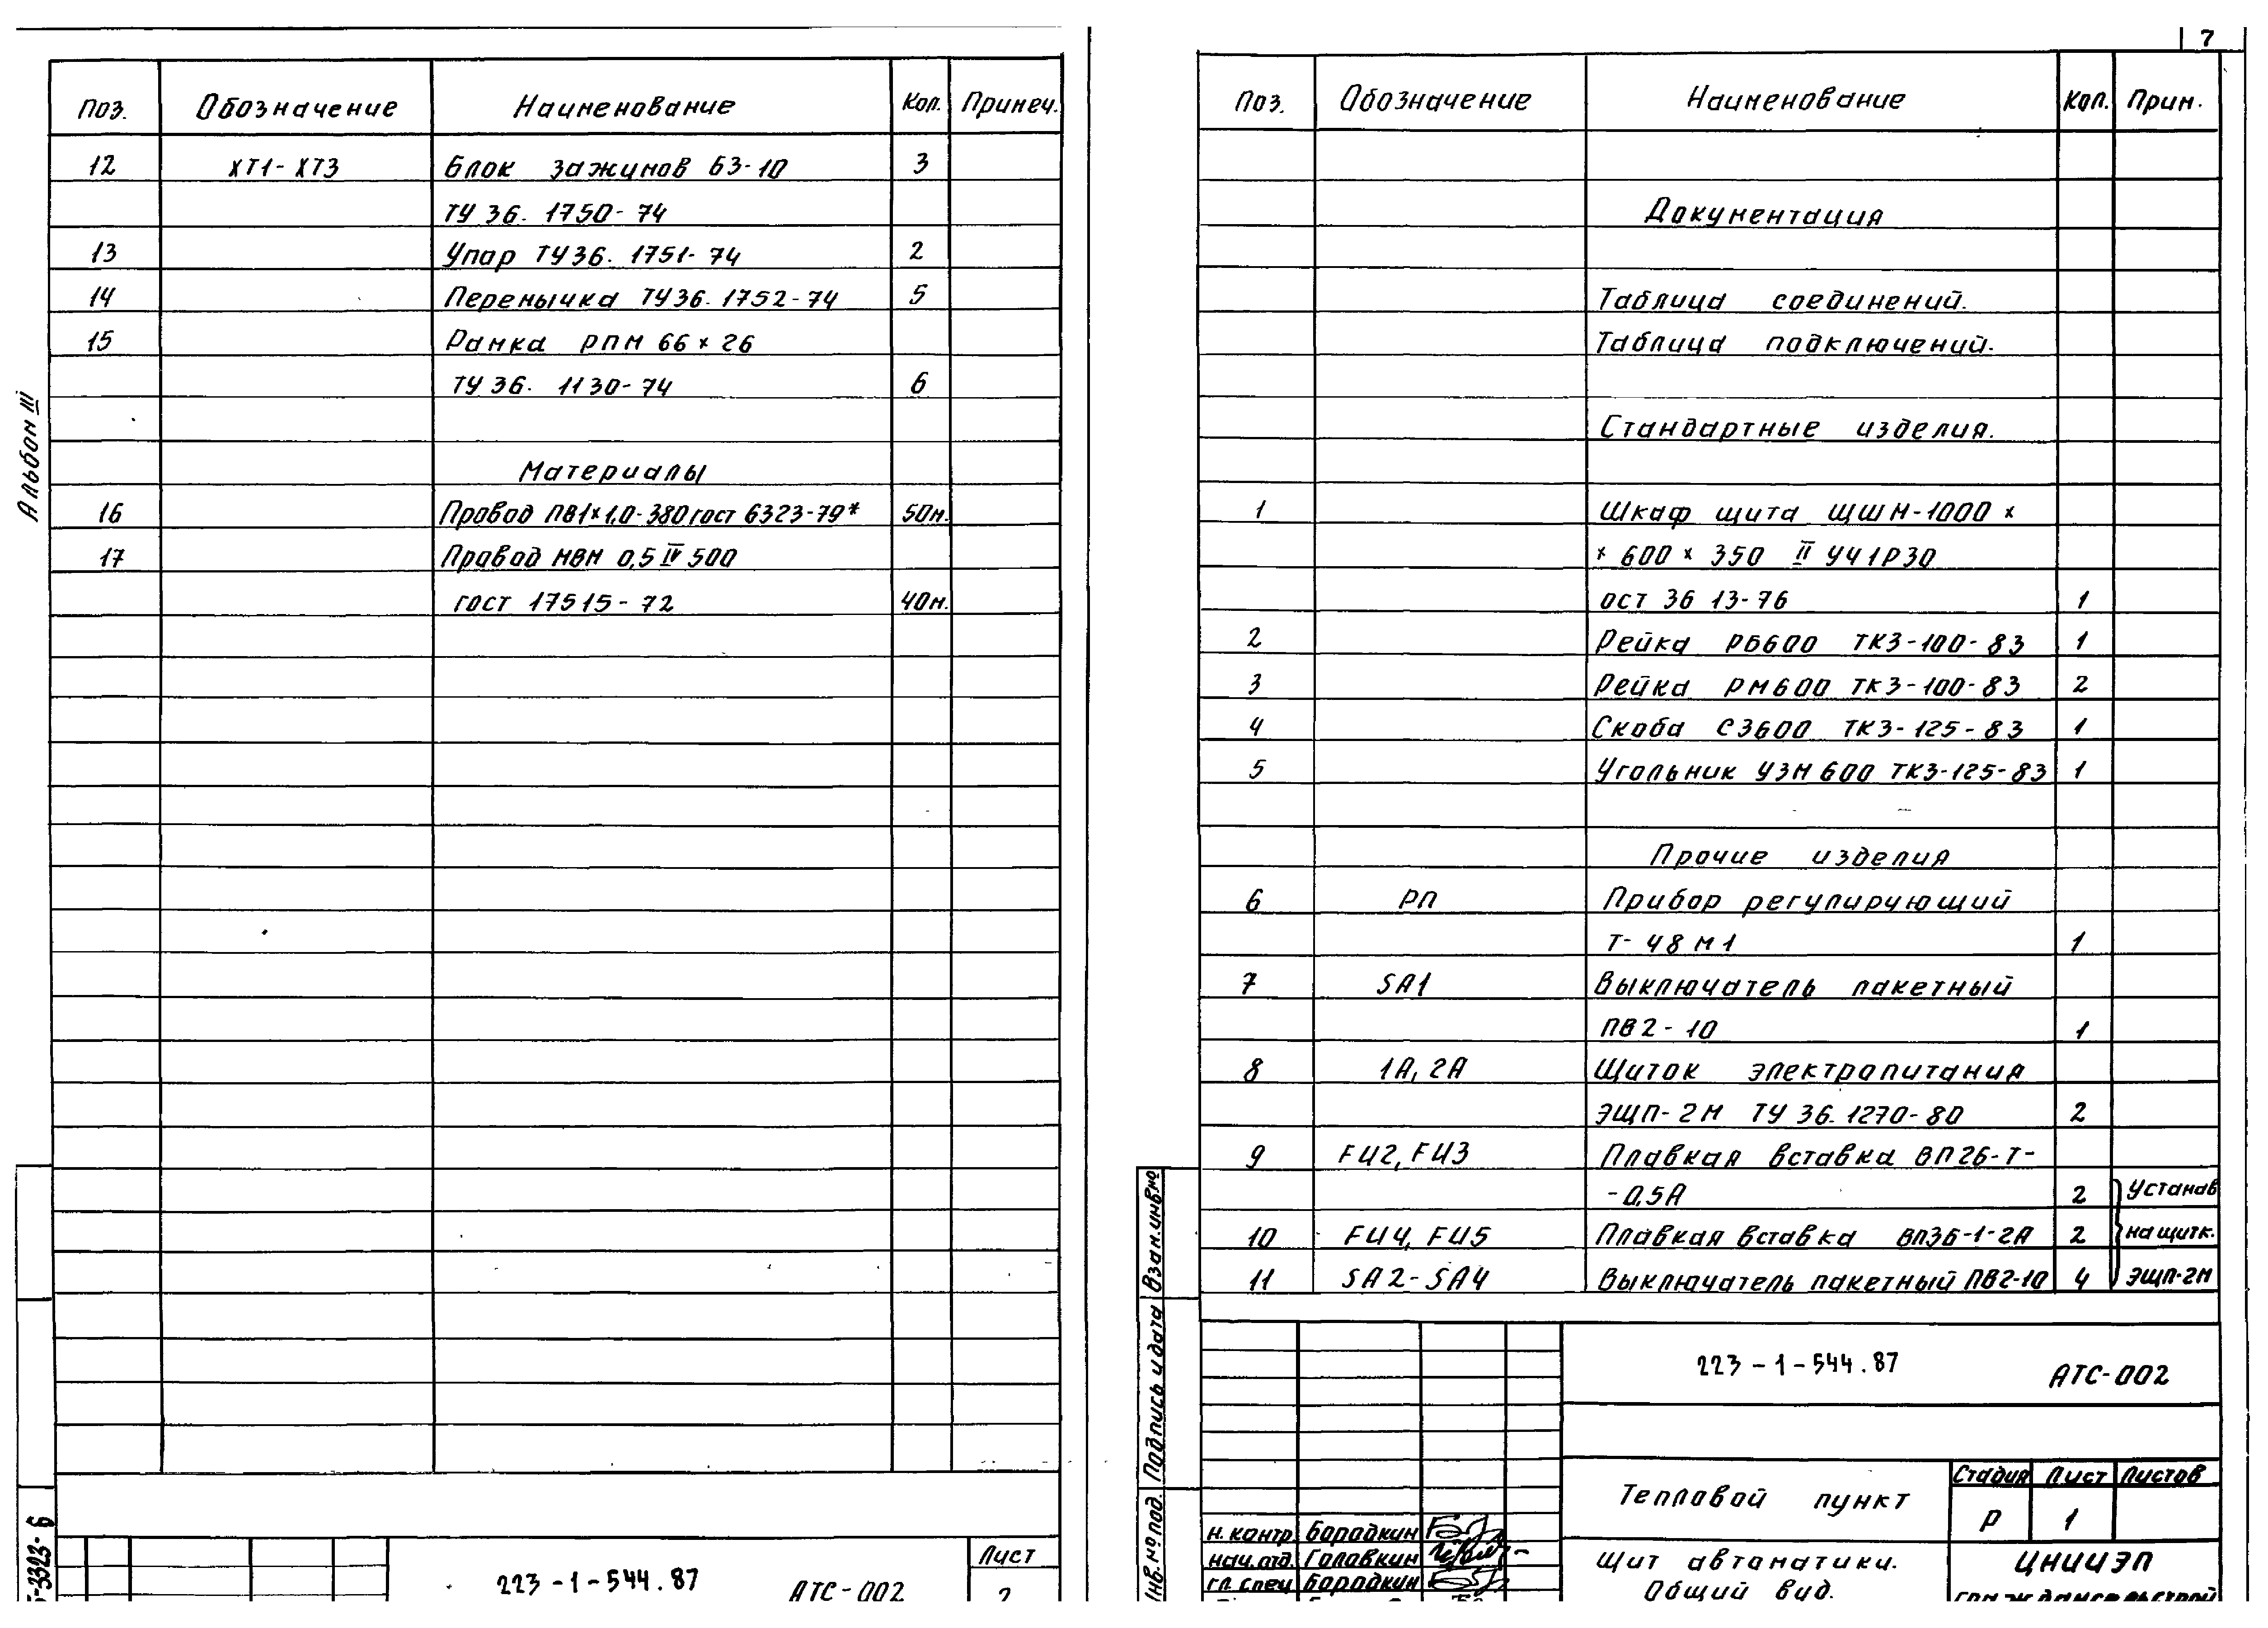 Альбом III
Поз. Обозначение Наименование Кол. Примеч.
12 XT1-XT3 Блок зажимов БЗ-10 3
ТУ 36. 1750-74
13 Упор ТУ36. 1751-74 2
14 Перемычка ТУ36. 1752-74 5
15 Рамка РПМ 66×26
ТУ 36. 1130-74 6
Материалы
16 Провод ПВ1×1,0-380 гост 6323-79* 50м.
17 Провод МВМ 0,5 IV 500
гост 17515-72 40м.
223-1-544.87 АТС-002
Лист
2
7
Поз. Обозначение Наименование Кол. Прим.
Документация
Таблица соединений.
Таблица подключений.
Стандартные изделия.
1 Шкаф щита ЩШМ-1000 ×
× 600 × 350 II У41Р30
ост 36 13-76 1
2 Рейка РБ600 ТК3-100-83 1
3 Рейка РМ600 ТК3-100-83 2
4 Скоба С3600 ТК3-125-83 1
5 Угольник УЗМ 600 ТК3-125-83 1
Прочие изделия
6 РП Прибор регулирующий
Т-48М1 1
7 SA1 Выключатель пакетный
ПВ2-10 1
8 1А, 2А Щиток электропитания
ЭЩП-2М ТУ 36. 1270-80 2
9 FU2, FU3 Плавкая вставка ВП2Б-Т-
-0,5А 2 Устанав
10 FU4, FU5 Плавкая вставка ВП3Б-1-2А 2 на щитк.
11 SA2-SA4 Выключатель пакетный ПВ2-10 4 ЭЩП-2М
Взам.инв№
Подпись и дата
Инв.№ под.
223-1-544.87 АТС-002
Тепловой пункт
Стадия Лист Листов
Р 1
н. контр. Бородкин
нач.отд. Головкин
гл. спец Бородкин
Щит автоматики.
Общий вид.
ЦНИИЭП
граждансельстрой